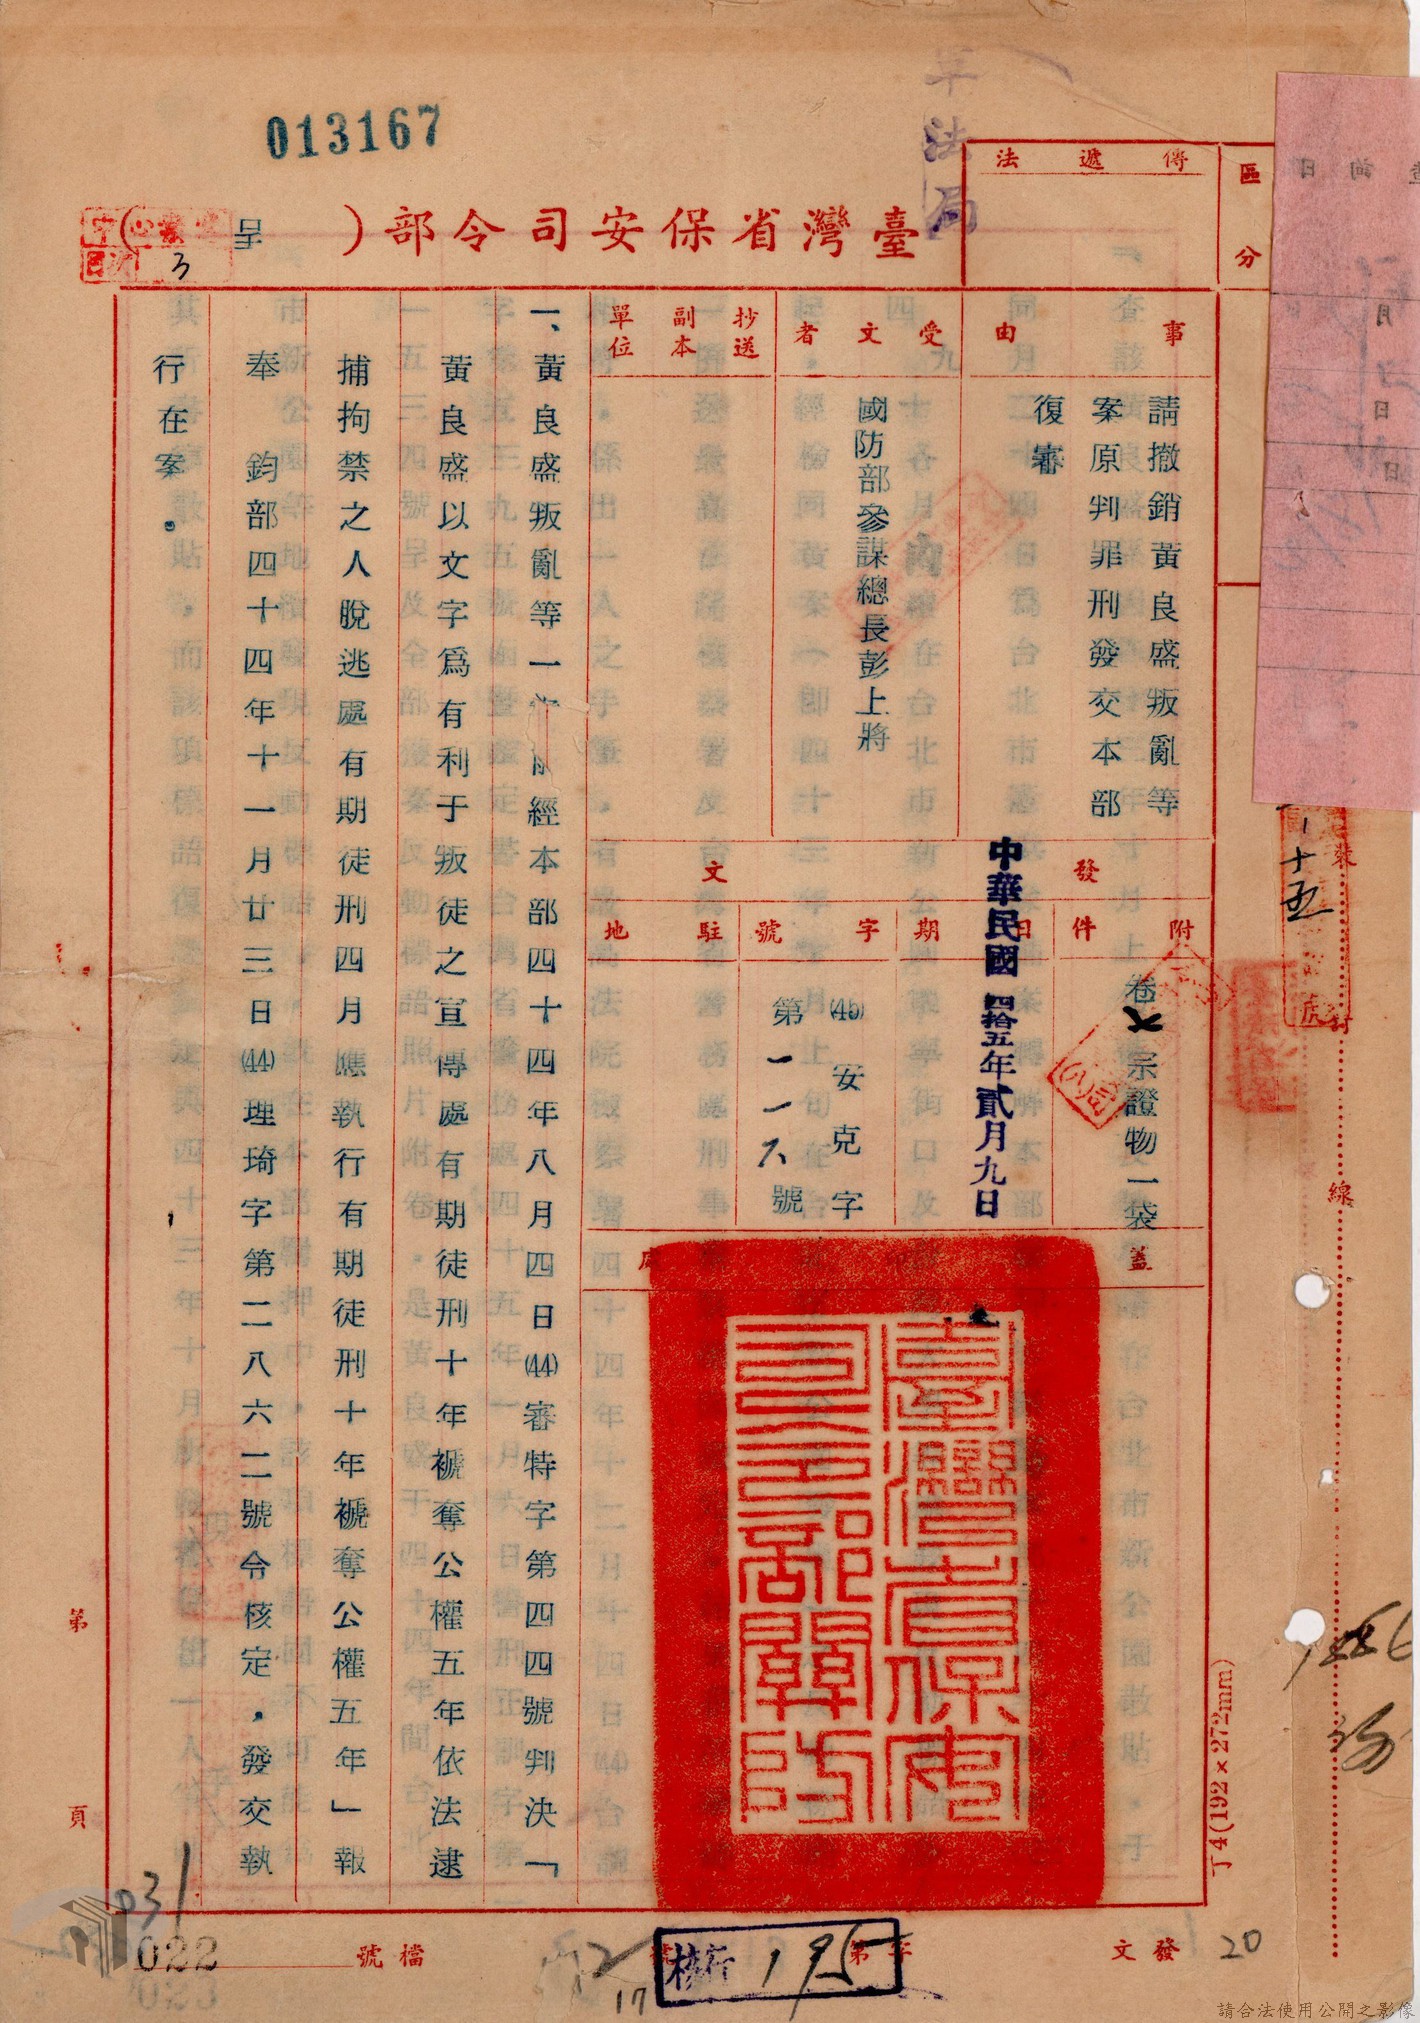 013167
軍法局
臺灣省保安司令部（呈）
區分
傳遞法
事由
請撤銷黃良盛叛亂等
案原判罪刑發交本部
復審
受文者
國防部參謀總長彭上將
抄送副本單位
發文
附件
卷六宗證物一袋
日期
中華民國四拾五年貳月九日
字號
(45)安克字
第一一六號
駐地
蓋
一、黃良盛叛亂等一 經本部四十四年八月四日(44)審特字第四四號判決「
黃良盛以文字為有利于叛徒之宣傳處有期徒刑十年褫奪公權五年依法逮
捕拘禁之人脫逃處有期徒刑四月應執行有期徒刑十年褫奪公權五年」報
奉 鈞部四十四年十一月廿三日(44)理琦字第二八六二號令核定，發交執
行在案。
臺灣省保安司令部關防
裝
訂
線
丁4(192×272mm)
第
頁
發文
字第
檔號
20
195
12
17
031
022
023
請合法使用公開之影像